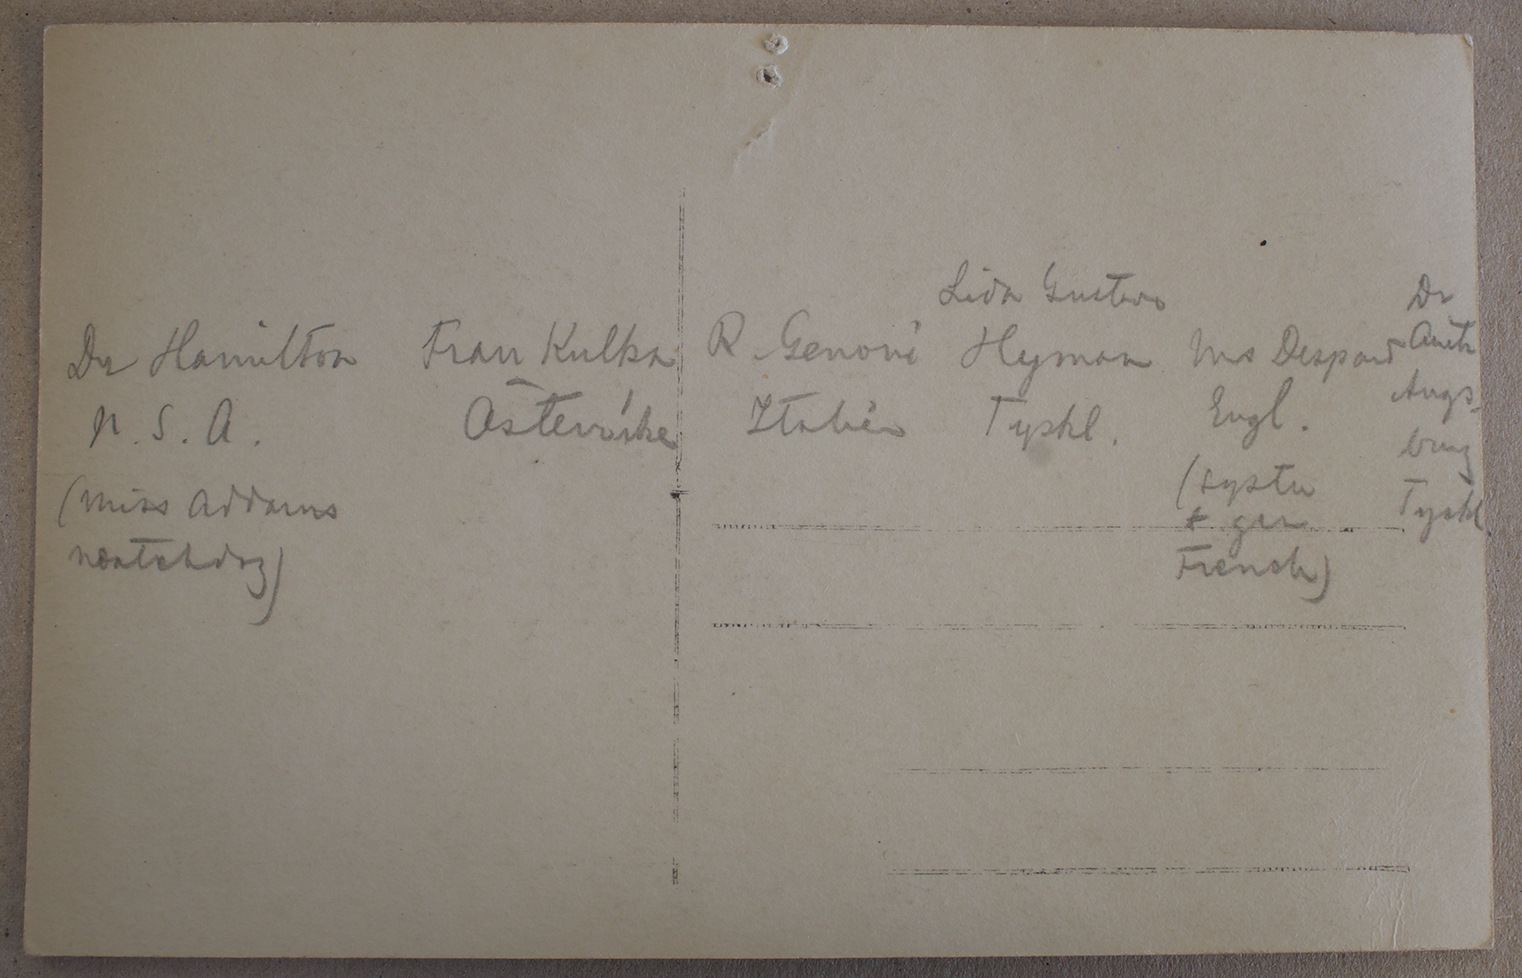 Lida Gustava
Dr Hamilton Frau Kulka R. Genoni Hyman Mrs Despard
U.S.A. Österrike Italien Tyskl. Engl.
(Miss Addams
watchdog)
(syster
t. gen
French)
Dr
Anita
Augs-
burg
Tyskl